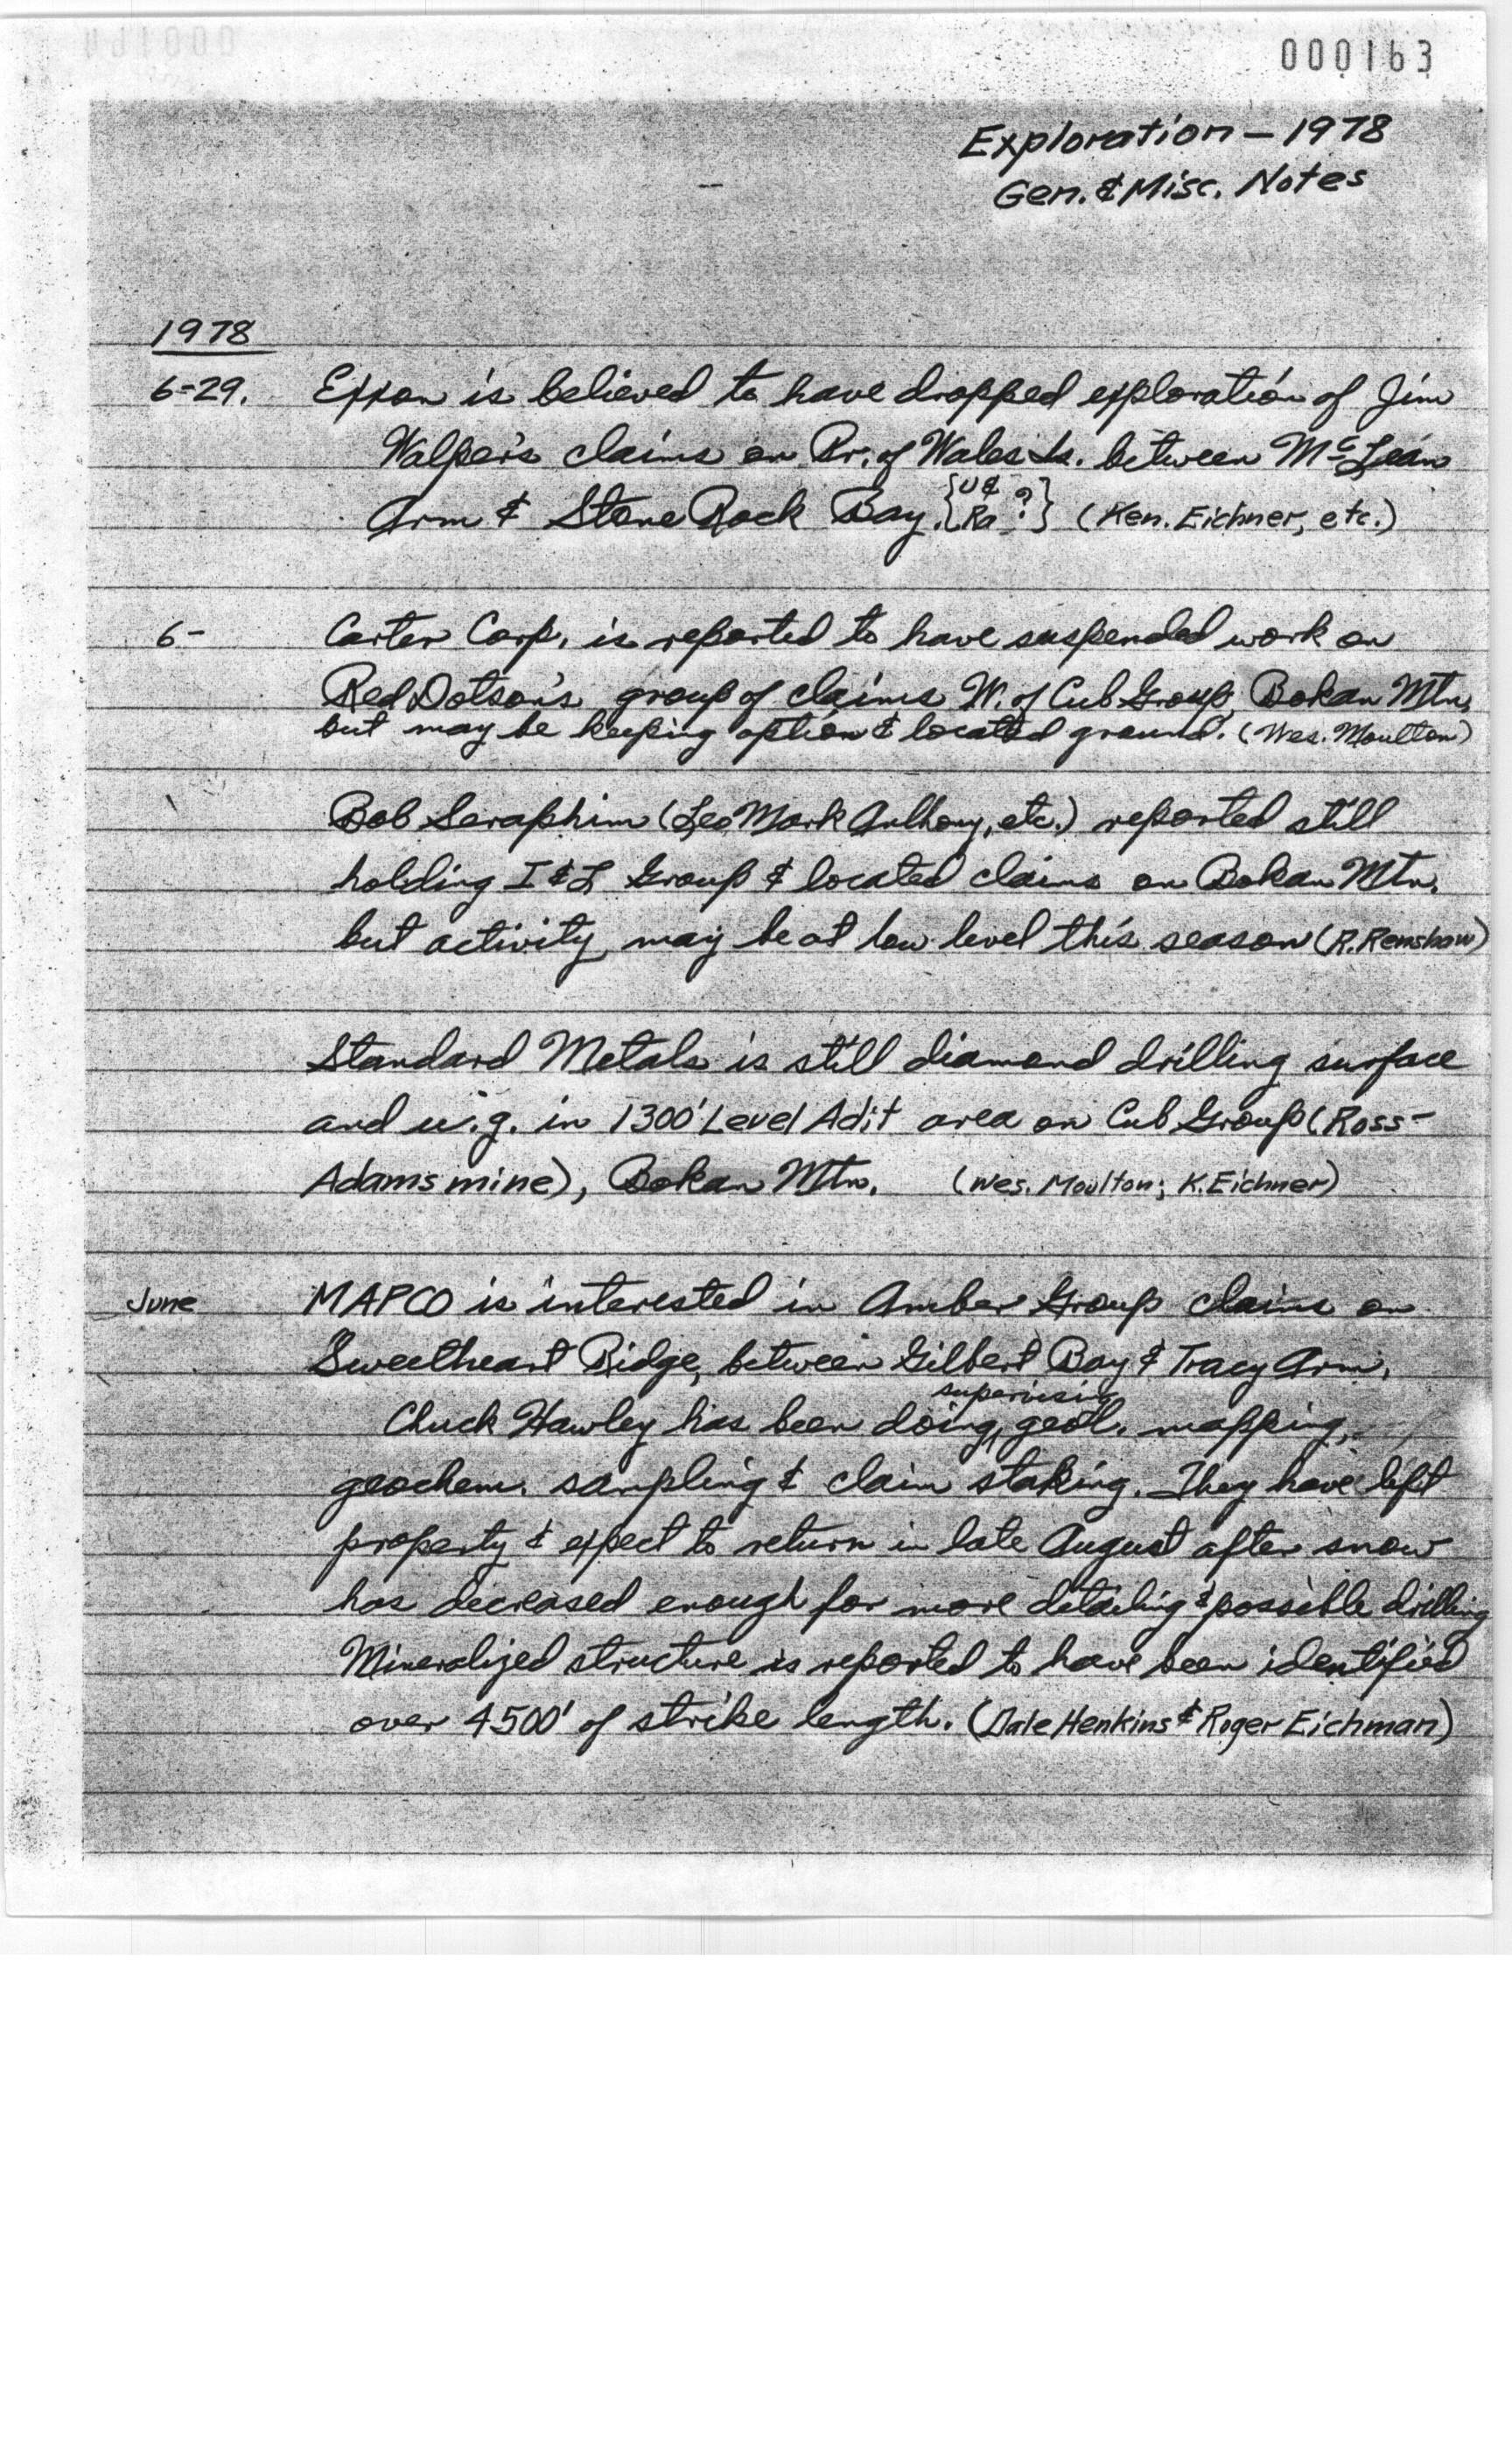 000163
Exploration - 1978
Gen. & Misc. Notes
1978
6-29. Exxon is believed to have dropped exploration of Jim
Walper's claims on Pr. of Wales Is. between McLean
Arm & Stone Rock Bay. {U & Ra ?} (Ken. Eichner, etc.)
6- Carter Corp. is reported to have suspended work on
Red Dotson's group of claims W. of Cub Group, Bokan Mtn.
but may be keeping option & located ground. (Wes. Moulton)
Bob Seraphim (Leo Mark Anthony, etc.) reported still
holding I & L Group & located claims on Bokan Mtn.
but activity may be at low level this season (R. Renshaw)
Standard Metals is still diamond drilling surface
and u.g. in 1300' Level Adit area on Cub Group (Ross-
Adams mine), Bokan Mtn. (Wes. Moulton; K. Eichner)
June MAPCO is interested in Amber Group claims on
Sweetheart Ridge, between Gilbert Bay & Tracy Arm.
supervising
Chuck Hawley has been doing, geol. mapping,
geochem. sampling & claim staking. They have left
property & expect to return in late August after snow
has decreased enough for more detailing & possible drilling
Mineralized structure is reported to have been identified
over 4500' of strike length. (Dale Henkins & Roger Eichman)